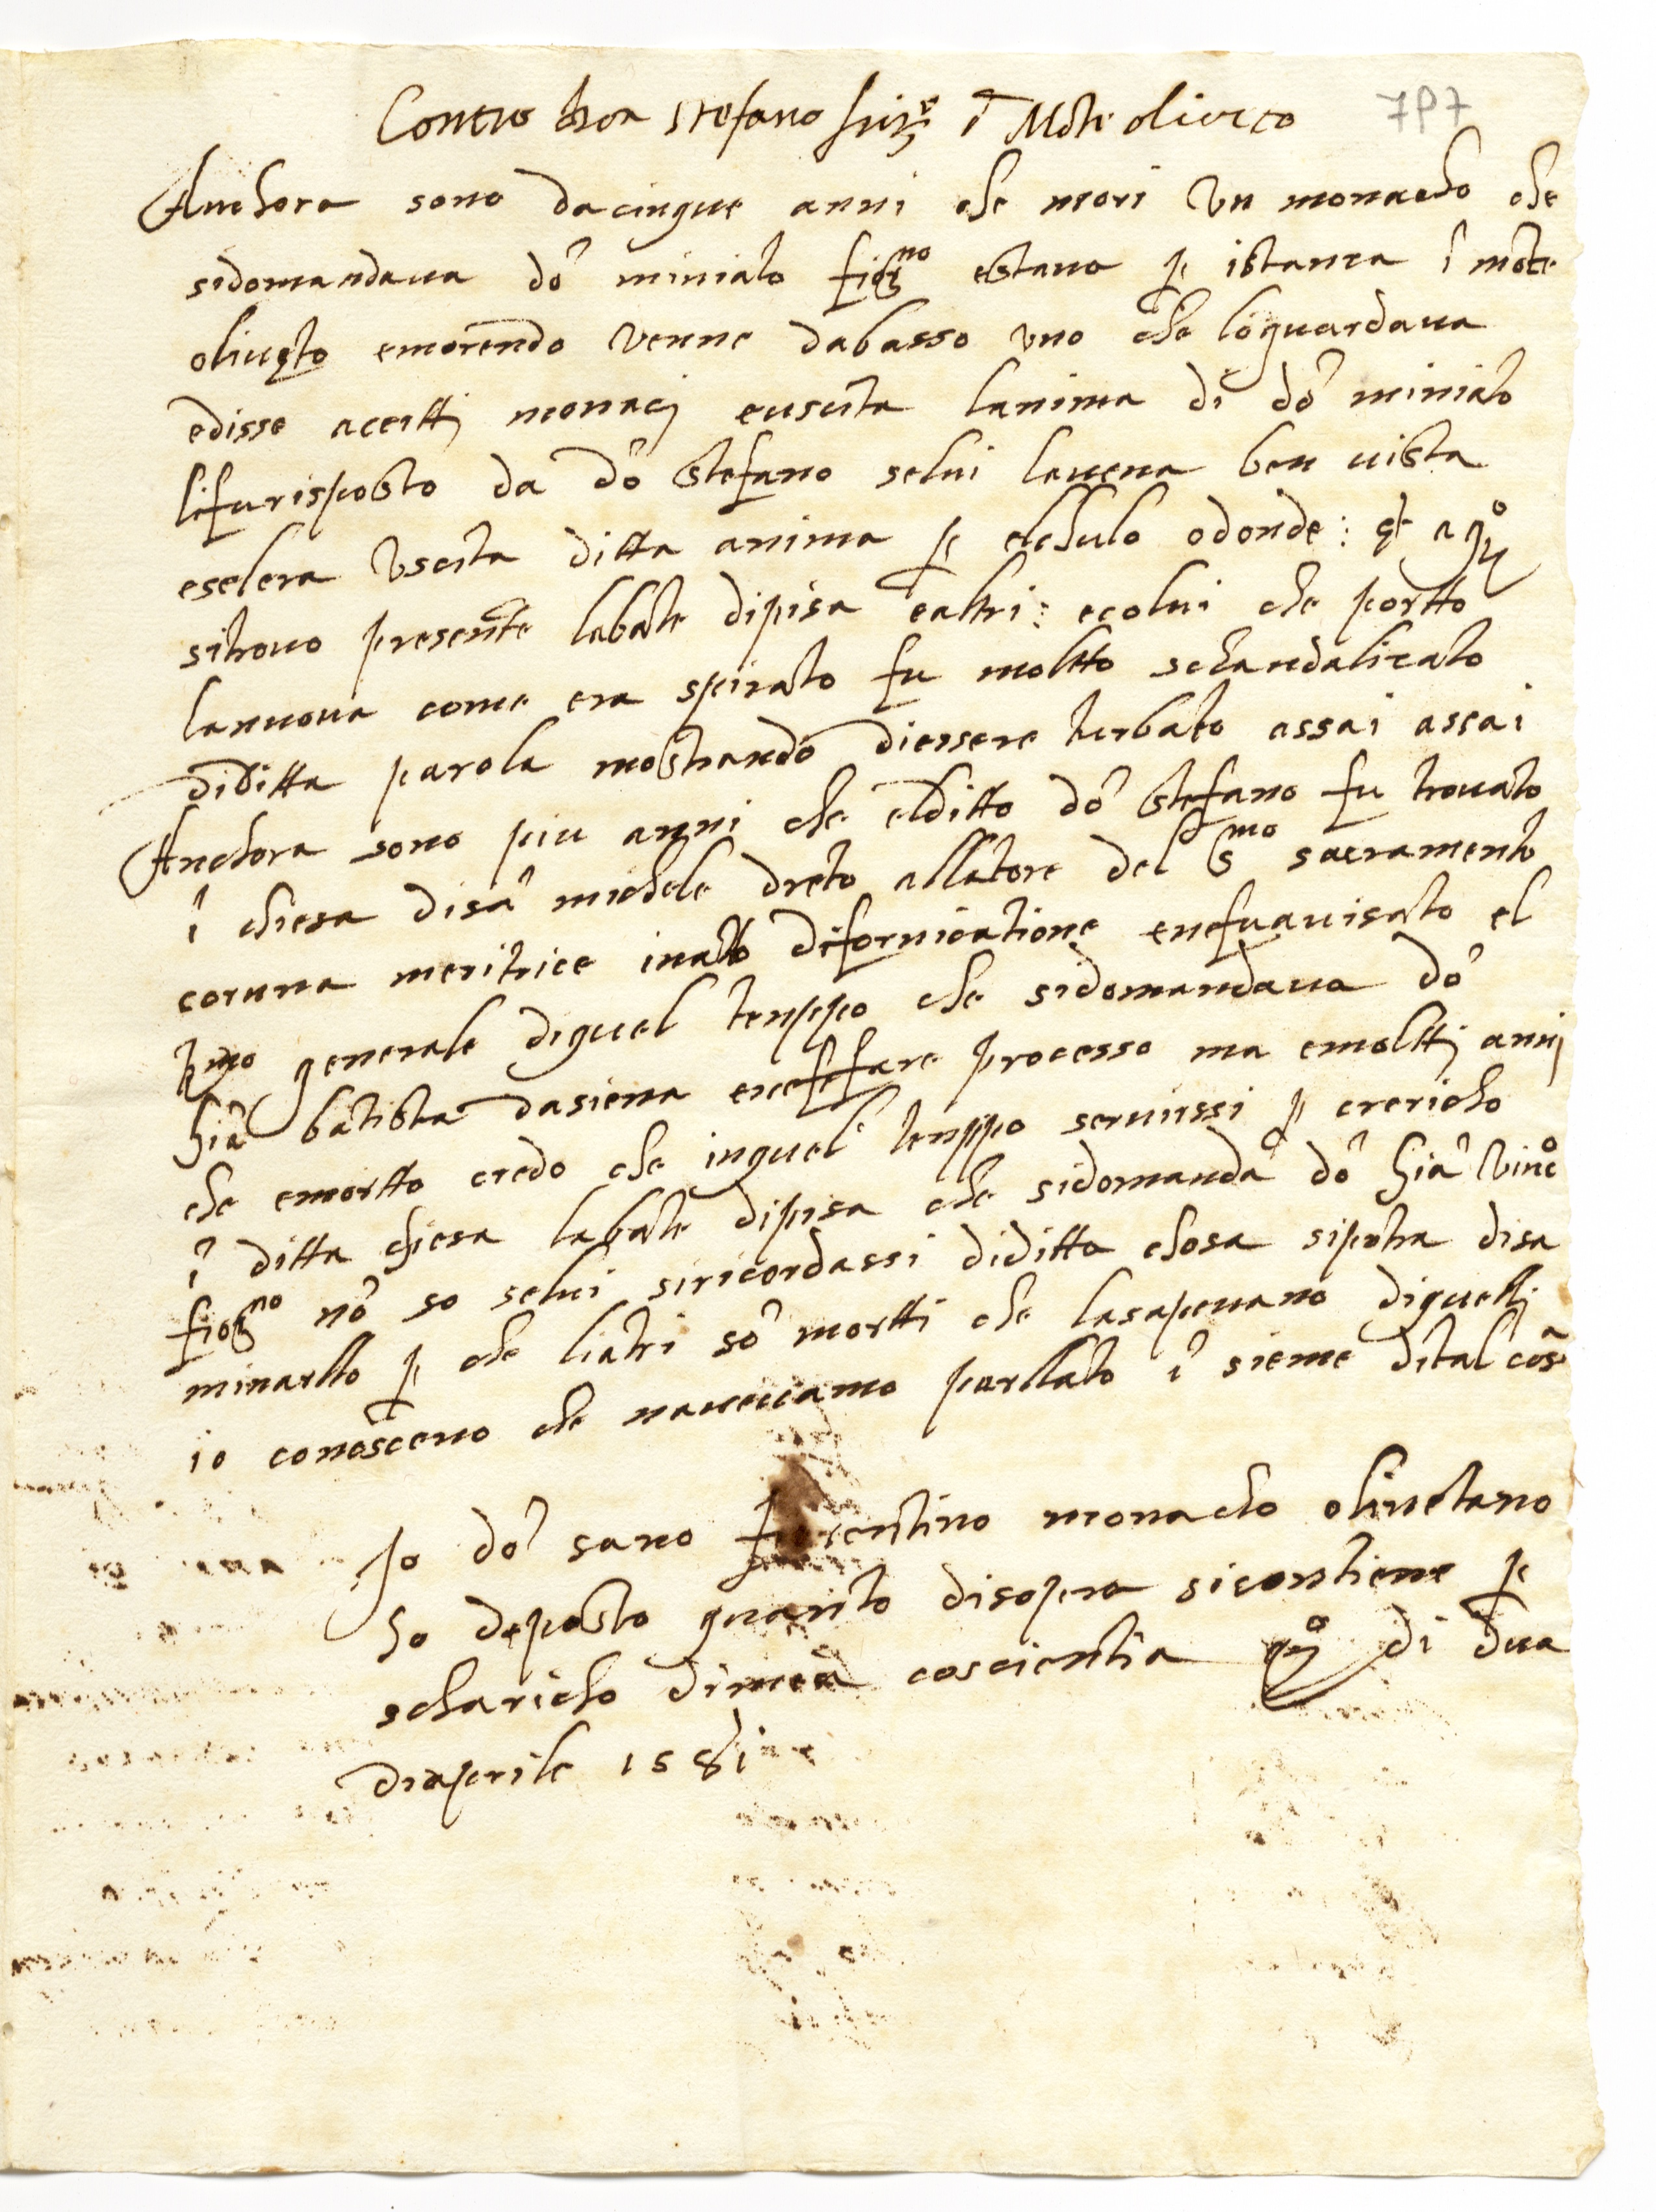 Contro don stefano ĩ Mõte oliveto 797
Anchora sono dacinque anni che mori un monacho che
sidomandaua dõ miniato fior^no estaua p istanza ĩ mõte
oliueto emorendo uenne dabasso uno che loguardaua
edisse acertti monacj euscita lanima di dõ miniato
lifurisposto da dõ stefano selui laueua ben uista
eselera uscita ditta anima p elchulo odonde:
sitrouo presente labate dipisa ealtri: ecolui che portto
lanuoua come era spirato fu moltto schandalizato
diditta parola mostrando diessere turbato assai assai
Anchora sono piu anni che elditto dõ stefano fu trouato
ĩ chiesa disã michele dreto allatore del S^mo sacramento
coruna meritrice inatto difornicatione enefuauisato el
generale diquel temppo che sidomandaua dõ
giã batista dasiena enefefare processo ma emolttj annj
che emortto credo che inquel temppo seruissi p crericho
ĩ ditta chiesa labate dipisa che sidomanda dõ giã vinc^o
fior^no nõ so selui siricordassi diditta chosa sipotra disa
minarllo p che liatri sõ mortti che lasapeuano diquelli
io conosceuo che naueuamo parllato ĩ sieme dital cosa
Io dõ sano fiorentino monacho oliuetano
ho deposto quanto disopra sicontiene p
scharicho dimea coscientia di dua
diaprile 1581